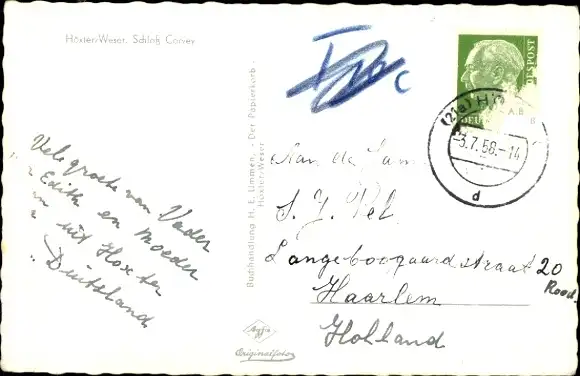 Höxter/Weser. Schloß Corvey
Vele groete van Vader
" Edith en Moeder
" uit Hoxter
" Duitsland
Buchhandlung H. E. Ummen, "Der Papierkorb", Höxter/Weser
Agfa
Originalfoto
C
DEUTSCHE BUNDESPOST
(21a) HÖ
A.B
B
-3.7.58.-14
d
Aan de Fam
S. J. Pel
Langeboogaardstraat 20
Rood.
Haarlem
Holland